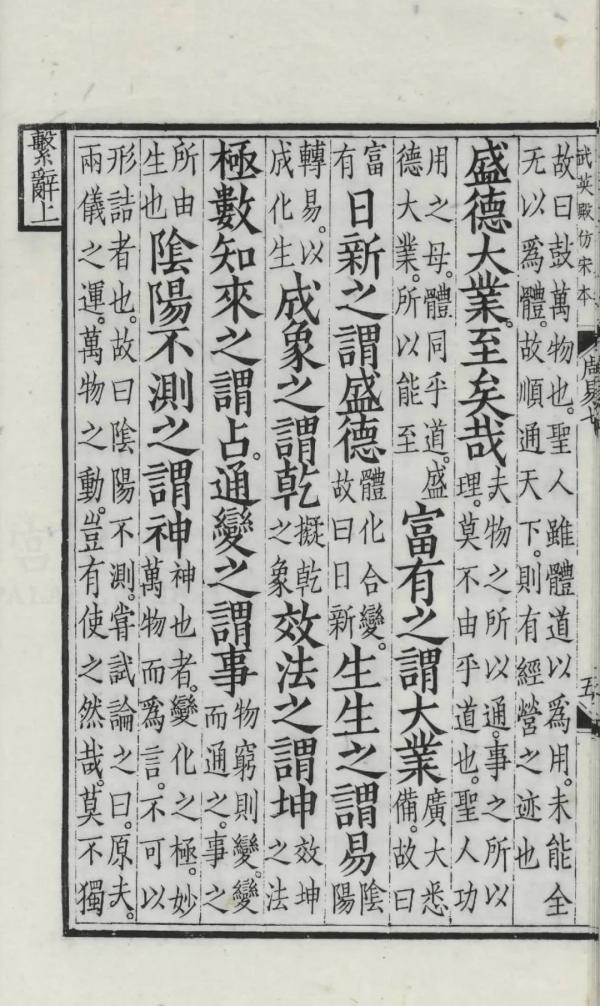 武英殿仿宋本
周易七
五
故曰鼓萬物也。聖人雖體道以爲用。未能全
无以爲體。故順通天下。則有經營之迹也
盛德大業。至矣哉
夫物之所以通。事之所以
理。莫不由乎道也。聖人功
用之母。體同乎道。盛
德大業。所以能至
富有之謂大業
廣大悉
備。故曰
富
有
日新之謂盛德
體化合變。
故曰日新
生生之謂易
陰
陽
轉易。以
成化生
成象之謂乾
擬乾
之象
效法之謂坤
效坤
之法
極數知來之謂占。通變之謂事
物窮則變。變
而通之。事之
所由
生也
陰陽不測之謂神
神也者。變化之極。妙
萬物而爲言。不可以
形詰者也。故曰陰陽不測。嘗試論之曰。原夫。
兩儀之運。萬物之動。豈有使之然哉。莫不獨
繫辭上